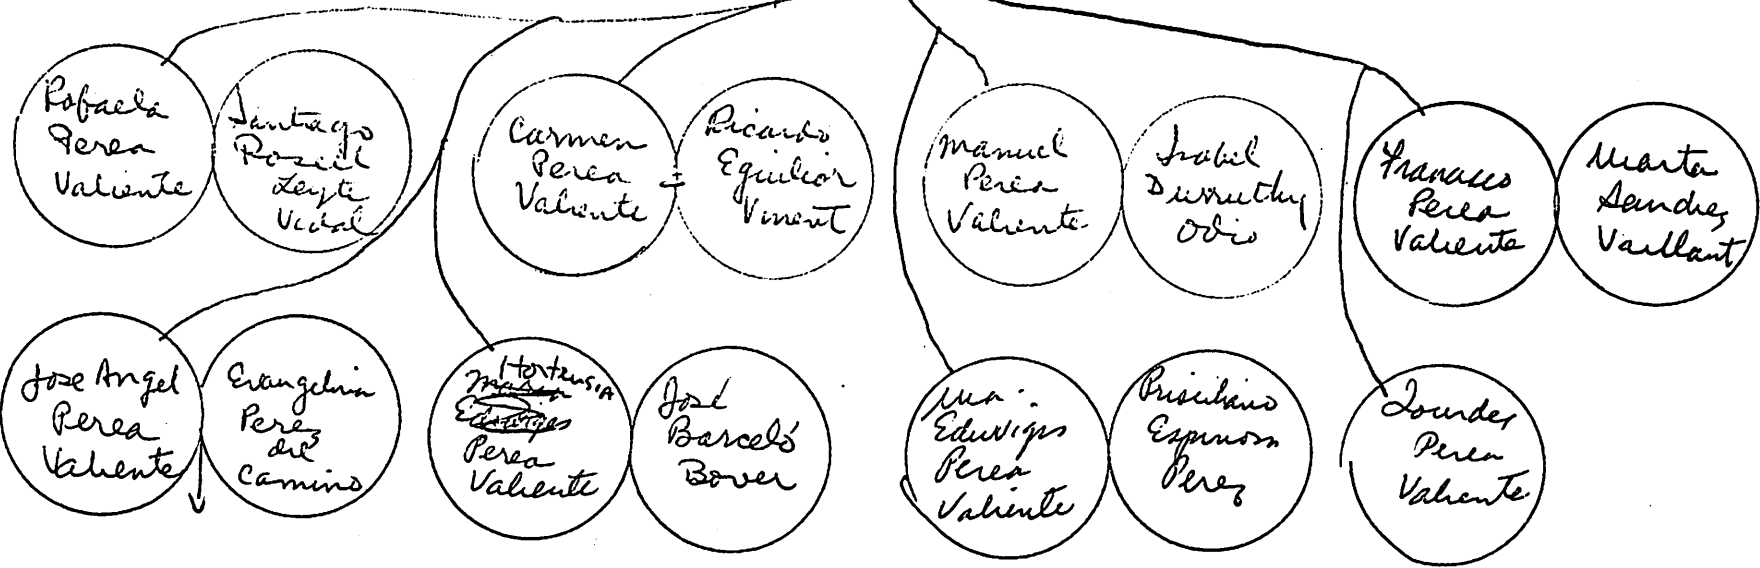 Rafaela
Perea
Valiente
Santiago
Rosell
Leyte
Vidal
Carmen
Perea
Valiente
=
Ricardo
Eguilior
Vinent
Manuel
Perea
Valiente
Isabel
Durruthy
Odio
Francisco
Perea
Valiente
Marta
Sanchez
Vaillant
Jose Angel
Perea
Valiente
Evangelina
Perez
del
Camino
Hortensia
Maria
Eduviges
Perea
Valiente
José
Barceló
Bover
Ma.
Eduvigis
Perea
Valiente
Prisciliano
Espinosa
Perez
Lourdes
Perea
Valiente